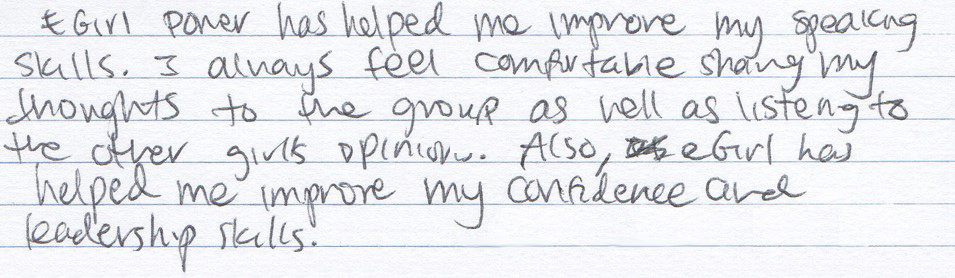 EGirl Power has helped me improve my speaking
skills. I always feel comfortable sharing my
thoughts to the group as well as listeng to
the other girls opinion. Also, eGirl has
helped me improve my confidence and
leadership skills.